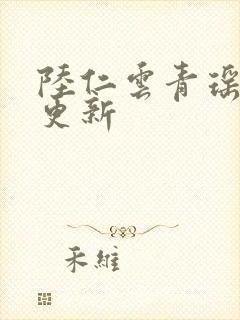 陸仁雲青瑶
更新
禾維